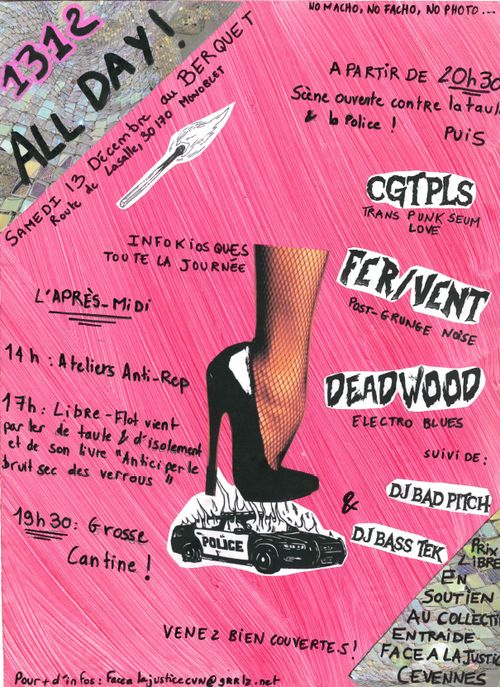 NO MACHO, NO FACHO, NO PHOTO ...
1312
ALL DAY!
SAMEDI 13 Décembre au BERQUET
Route de Lasalle, 30170 MONOBLET
A PARTIR DE 20h30
Scène ouverte contre la taule
& la Police !
PUIS
CGTPLS
TRANS PUNK SEUM
LOVE
INFOKIOSQUES
TOUTE LA JOURNÉE
FER/VENT
POST-GRUNGE NOISE
L'APRÈS-MIDI
14h : Ateliers Anti-Rep
DEADWOOD
ELECTRO BLUES
17h : Libre-Flot vient
parler de taule & d'isolement
et de son livre "Anticiper le
bruit sec des verrous"
SUIVI DE :
DJ BAD PITCH
&
DJ BASS TEK
19h30 : Grosse
Cantine !
POLICE
Prix
LIBRE
EN
SOUTIEN
AU COLLECTIF
ENTRAIDE
FACE A LA JUSTICE
CEVENNES
VENEZ BIEN COUVERTES !
Pour + d'infos : facealajusticecvn@grrlz.net